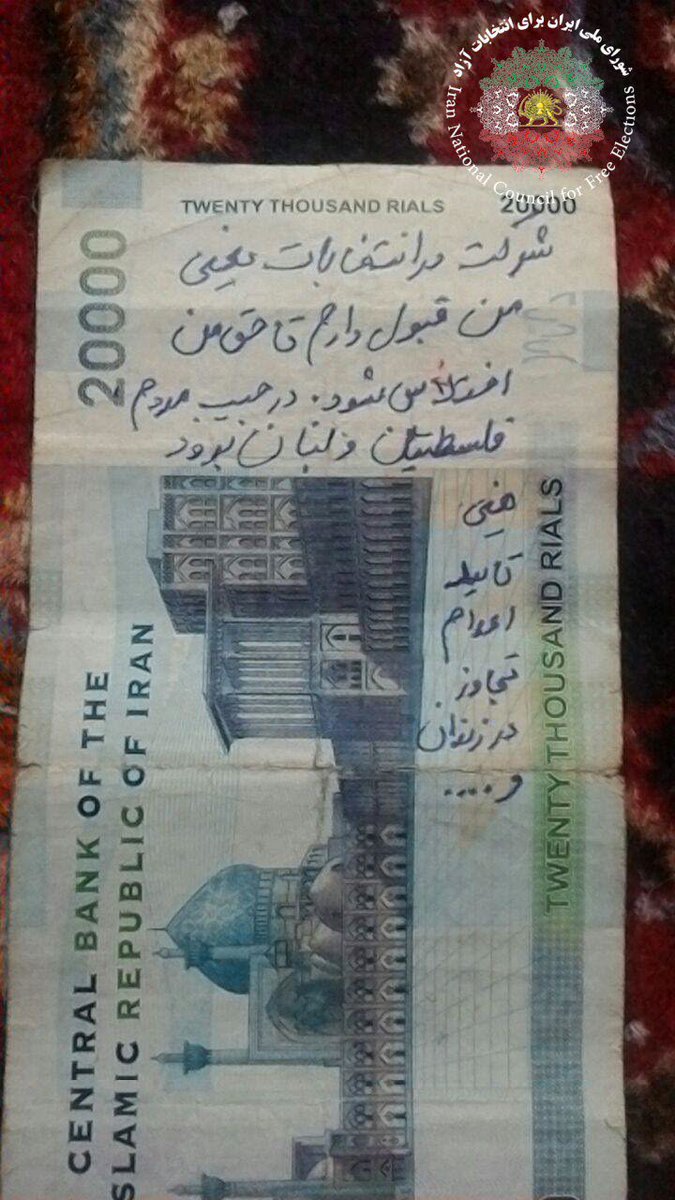 شورای ملی ایران برای انتخابات آزاد
Iran National Council for Free Elections
TWENTY THOUSAND RIALS
20000
20000
شرکت در انتخابات یعنی
من قبول دارم تا حق من
اختلاس بشود. در جیب مردم
فلسطین و لبنان برود
یعنی
تایید
اعدام
تجاوز
در زندان
و....
TWENTY THOUSAND RIALS
CENTRAL BANK OF THE
ISLAMIC REPUBLIC OF IRAN